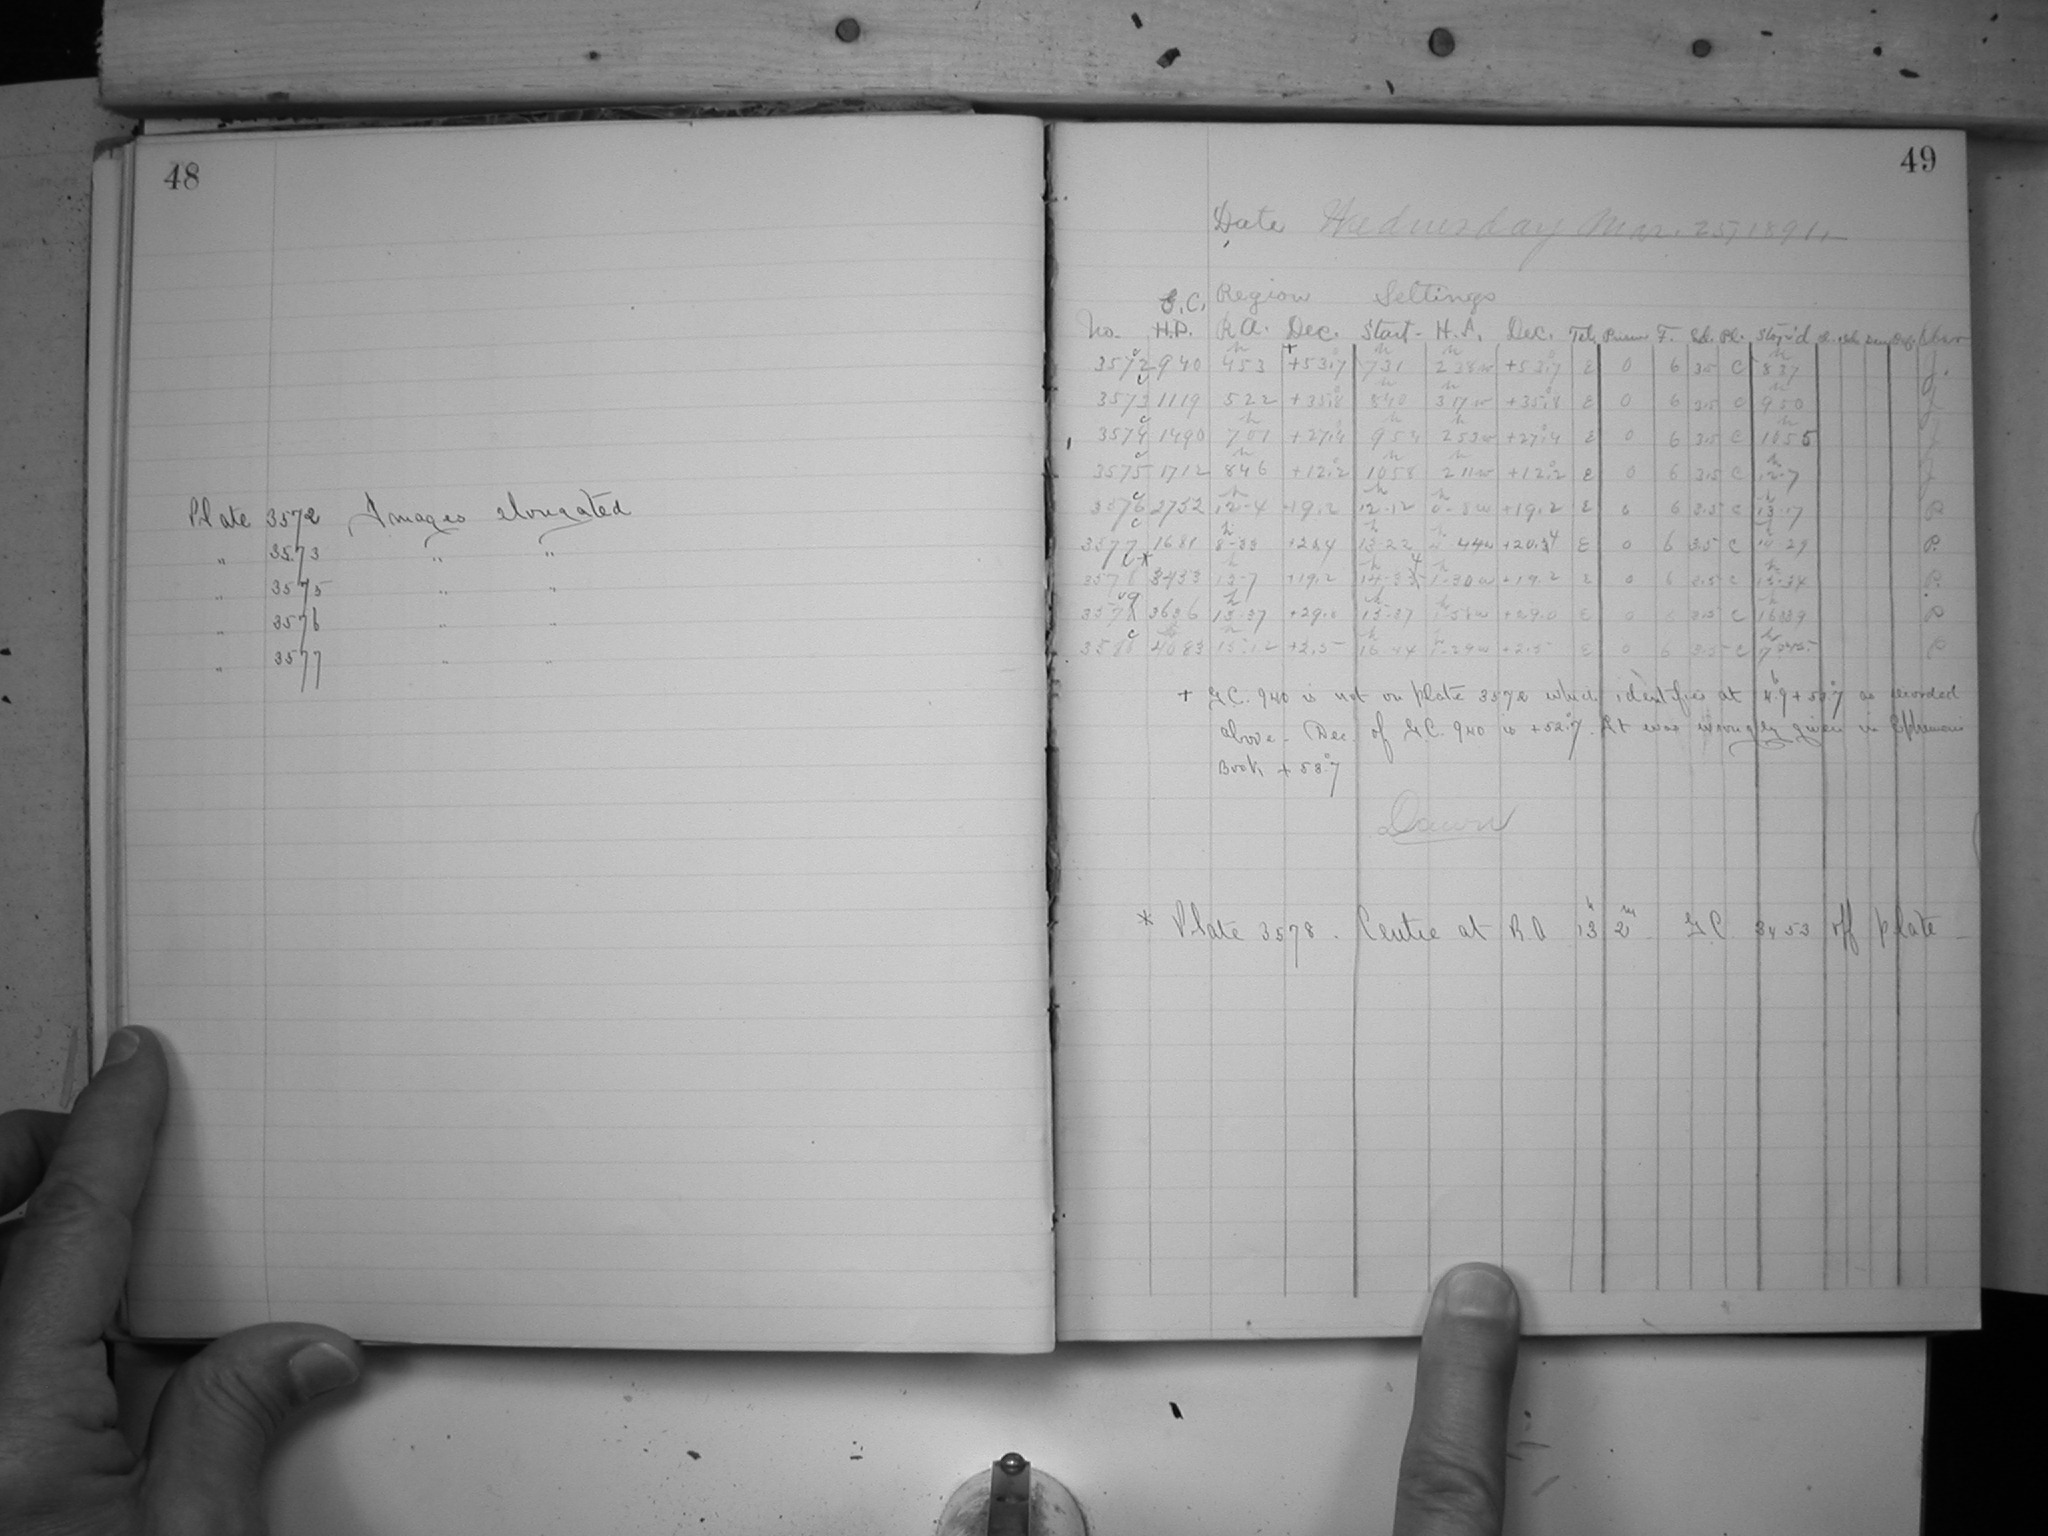 48
Plate 3572 Images elongated
" 3573 " "
" 3575 " "
" 3576 " "
" 3577 " "
49
Date Wednesday Mar. 25, 1891.
G.C. Region Settings
No. H.P. R.A. Dec. Start H.A. Dec. Tel. F. Pl. Stop'd
3572 940 4 53 +53.7 7 31 2 38w +53.7 E 0 6 3.5 C 8 37 J.
3573 1119 5 22 +35.8 8 40 3 17w +35.8 E 0 6 3.5 C 9 50 J
3574 1490 7 01 +27.4 9 54 2 53w +27.4 E 0 6 3.5 C 10 55 J
3575 1712 8 46 +12.2 10 58 2 11w +12.2 E 0 6 3.5 C 12-7 J
3576 2752 12-4 +19.2 12-12 0-8w +19.2 E 0 6 3.5 C 13-17 P
3577 1681 +20.4 13-22 +20.4 E 0 6 3.5 C 14 29 P.
3578 * 3453 13-7 +19.2 1-30w +19.2 E 0 6 3.5 C 15-34 P.
3579 3636 13-37 +29.0 15-37 +29.0 E 0 6 3.5 C 16 39 P
3580 4083 15-12 +2.5 16 44 1-29w +2.5 E 0 6 3.5 C P
+ G.C. 940 is not on plate 3572 which identifies at as recorded
above - Dec. of G.C. 940 is +52.7. It was wrongly given in Ephemeris
Book + 53.7
Dawn
* Plate 3578. Centre at R.A 13h 2m. G.C. 3453 off plate